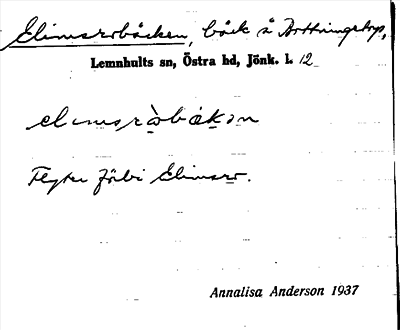 Elimsrobäcken, bäck å Drottningetorp,
Lemnhults sn, Östra hd, Jönk. l. 12
elimsròbäkən
Flyter förbi Elimsro.
Annalisa Anderson 1937